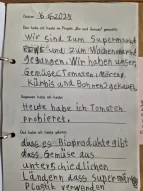 Datum: 6.10.2023
Das habe ich heute im Projekt „ und “ gemacht:
Wir sind zum Supermarkt
REWE und zum Wochenmarkt
gegangen. Wir haben unser
Gemüse, Tomaten, Möhren,
Kürbis und Bohnen
Begonnen habe ich heute:
Heute habe ich Tomaten
probieret.
Das habe ich heute gelernt:
dass es Bioprodukte gibt
dass Gemüse aus
unterschiedlichen
Ländern dass Supermärkte
Plastik verwenden